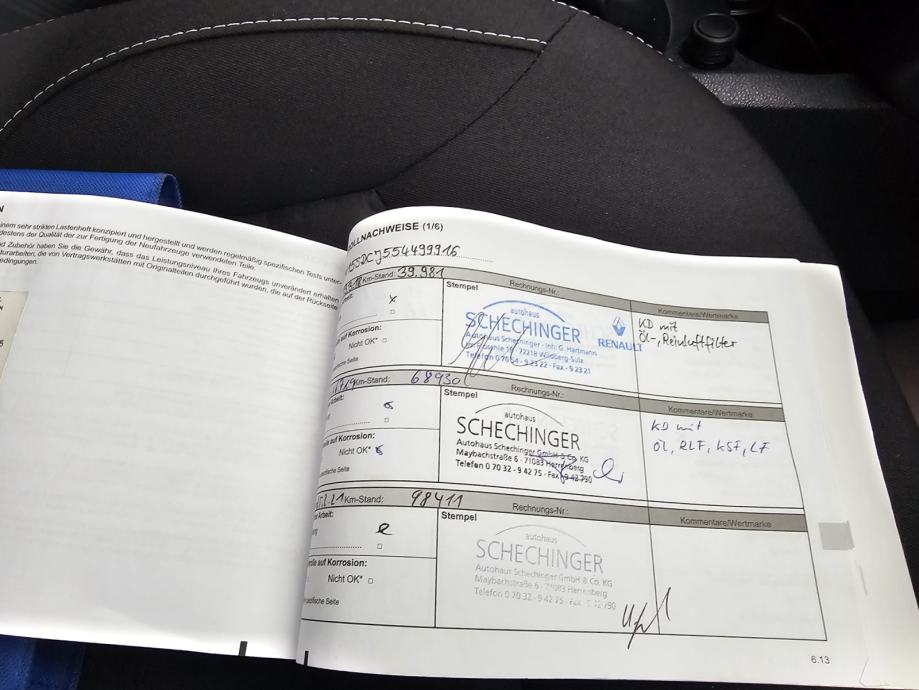 N
einem sehr strikten Lastenheft konzipiert und hergestellt und werden regelmäßig spezifischen Tests unter-
destens der Qualität der zur Fertigung der Neufahrzeuge verwendeten Teile.
d Zubehör haben Sie die Gewähr, dass das Leistungsniveau Ihres Fahrzeugs unverändert erhalten
turarbeiten, die von Vertragswerkstätten mit Originalteilen durchgeführt wurden, die auf der Rückseite
edingungen.
OLLNACHWEISE (1/6)
Km-Stand: 39.981
Rechnungs-Nr.:
Stempel
Kommentare/Wertmarke
autohaus
SCHECHINGER
RENAULT
Autohaus Schechinger - Inh. G. Hartmann
72218 Wildberg-Sulz
Telefon 0 70 54 - 9 23 22 - Fax 9 23 21
KD mit
Öl-, Reinluftfilter
x
Korrosion:
Nicht OK*
Seite
Km-Stand: 68930
Rechnungs-Nr.:
Stempel
Kommentare/Wertmarke
autohaus
SCHECHINGER
Autohaus Schechinger GmbH & Co. KG
Maybachstraße 6 - 71083 Herrenberg
Telefon 0 70 32 - 9 42 75 - Fax 9 42 790
KD mit
Öl, RLF, KSF, LF
Korrosion:
Nicht OK*
Seite
Km-Stand: 98411
Rechnungs-Nr.:
Stempel
Kommentare/Wertmarke
autohaus
SCHECHINGER
Autohaus Schechinger GmbH & Co. KG
Maybachstraße 6 - 71083 Herrenberg
Telefon 0 70 32 - 9 42 75 - Fax 9 42 790
Arbeit:
rolle auf Korrosion:
Nicht OK*
Seite
6.13